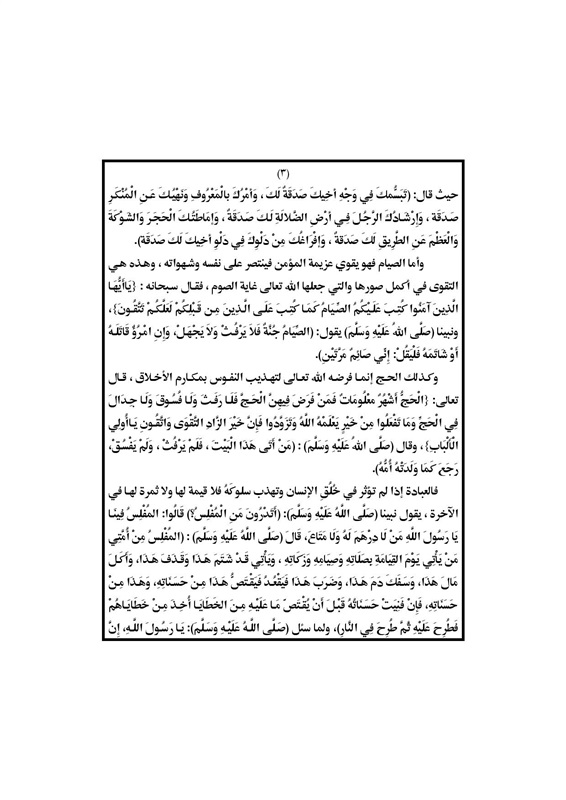 (٣)
حيث قال: (تَبَسُّمكَ فِي وَجْهِ أخيكَ صَدَقَةً لكَ ، وَأمْرُكَ بالْمَعْرُوفِ وَنَهْيُكَ عَنِ الْمُنْكَرِ
صَدَقَة ، وَإِرْشَادُكَ الرَّجُلَ فِي أرْضِ الضَّلالَةِ لَكَ صَدَقَةً ، وَإمَاطَتُكَ الْحَجَرَ وَالشَّوْكَةَ
وَالْعَظْمَ عَنِ الطَّرِيقِ لَكَ صَدَقَةً ، وَإِفْرَاغُكَ مِنْ دَلْوِكَ فِي دَلْوِ أخيكَ لَكَ صَدَقَة).
وأما الصيام فهو يقوي عزيمة المؤمن فينتصر على نفسه وشهواته ، وهذه هي
التقوى في أكمل صورها والتي جعلها الله تعالى غاية الصوم ، فقال سبحانه : {يَاأَيُّهَا
الَّذِينَ آمَنُوا كُتِبَ عَلَيْكُمُ الصِّيَامُ كَمَا كُتِبَ عَلَى الَّذِينَ مِن قَبْلِكُمْ لَعَلَّكُمْ تَتَّقُونَ}،
ونبينا (صَلَّى اللهُ عَلَيْهِ وَسَلَّمَ) يقول: (الصِّيَامُ جُنَّةٌ فَلاَ يَرْفُثْ وَلاَ يَجْهَلْ، وَإِنِ امْرُؤٌ قَاتَلَهُ
أَوْ شَاتَمَهُ فَلْيَقُلْ: إِنِّي صَائِمٌ مَرَّتَيْنِ).
وكذلك الحج إنما فرضه الله تعالى لتهذيب النفوس بمكارم الأخلاق ، قال
تعالى: {الْحَجُّ أَشْهُرٌ مَعْلُومَاتٌ فَمَنْ فَرَضَ فِيهِنَّ الْحَجَّ فَلَا رَفَثَ وَلَا فُسُوقَ وَلَا جِدَالَ
فِي الْحَجِّ وَمَا تَفْعَلُوا مِنْ خَيْرٍ يَعْلَمْهُ اللَّهُ وَتَزَوَّدُوا فَإِنَّ خَيْرَ الزَّادِ التَّقْوَى وَاتَّقُونِ يَاأُولِي
الْأَلْبَابِ} ، وقال (صَلَّى اللهُ عَلَيْهِ وَسَلَّمَ) : (مَنْ أَتَى هَذَا الْبَيْتَ ، فَلَمْ يَرْفُثْ ، وَلَمْ يَفْسُقْ،
رَجَعَ كَمَا وَلَدَتْهُ أُمُّهُ).
فالعبادة إذا لم تؤثر في خُلُقِ الإنسان وتهذب سلوكَهُ فلا قيمة لها ولا ثمرة لها في
الآخرة ، يقول نبينا (صَلَّى اللَّهُ عَلَيْهِ وَسَلَّمَ): (أَتَدْرُونَ مَنِ الْمُفْلِسُ؟) قَالُوا: المُفْلِسُ فِينَا
يَا رَسُولَ اللَّهِ مَنْ لَا دِرْهَمَ لَهُ وَلَا مَتَاعَ، قَالَ (صَلَّى اللَّهُ عَلَيْهِ وَسَلَّمَ) : (المُفْلِسُ مِنْ أُمَّتِي
مَنْ يَأْتِي يَوْمَ القِيَامَةِ بِصَلَاتِهِ وَصِيَامِهِ وَزَكَاتِهِ ، وَيَأْتِي قَدْ شَتَمَ هَذَا وَقَذَفَ هَذَا، وَأَكَلَ
مَالَ هَذَا، وَسَفَكَ دَمَ هَذَا، وَضَرَبَ هَذَا فَيَقْعُدُ فَيَقْتَصُّ هَذَا مِنْ حَسَنَاتِهِ، وَهَذَا مِنْ
حَسَنَاتِهِ، فَإِنْ فَنِيَتْ حَسَنَاتُهُ قَبْلَ أَنْ يُقْتَصَّ مَا عَلَيْهِ مِنَ الخَطَايَا أُخِذَ مِنْ خَطَايَاهُمْ
فَطُرِحَ عَلَيْهِ ثُمَّ طُرِحَ فِي النَّارِ)، ولما سئل (صَلَّى اللَّهُ عَلَيْهِ وَسَلَّمَ): يَا رَسُولَ اللَّهِ، إِنَّ